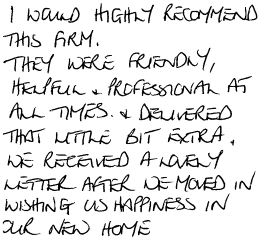 I WOULD HIGHLY RECOMMEND
THIS FIRM.
THEY WERE FRIENDLY,
HELPFUL & PROFESSIONAL AT
ALL TIMES. & DELIVERED
THAT LITTLE BIT EXTRA.
WE RECEIVED A LOVELY
LETTER AFTER WE MOVED IN
WISHING US HAPPINESS IN
OUR NEW HOME